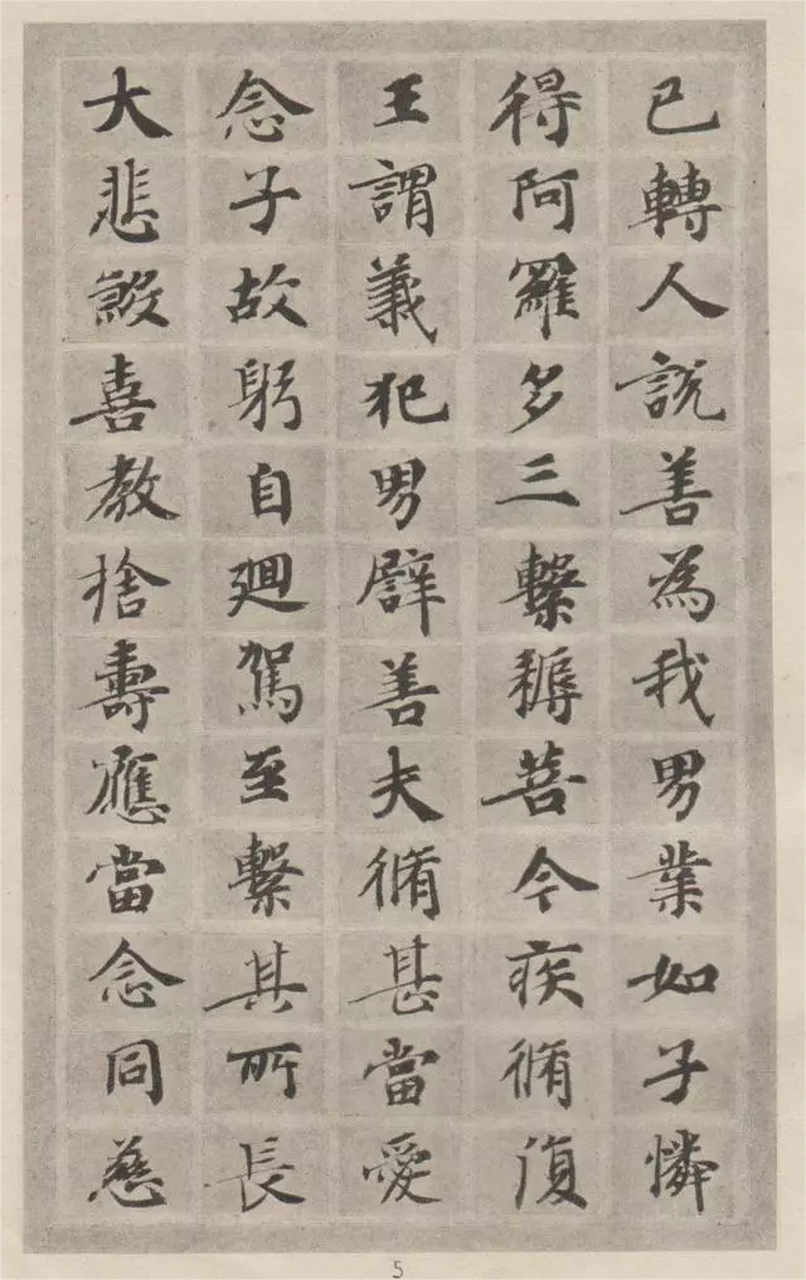 已轉人說善為我男業如子憐
得阿羅多三繫稱菩今疾脩復
王謂義犯男譬善夫脩甚當愛
念子故躬自迴駕至繫其所長
大悲設喜教捨壽應當念同慈
5